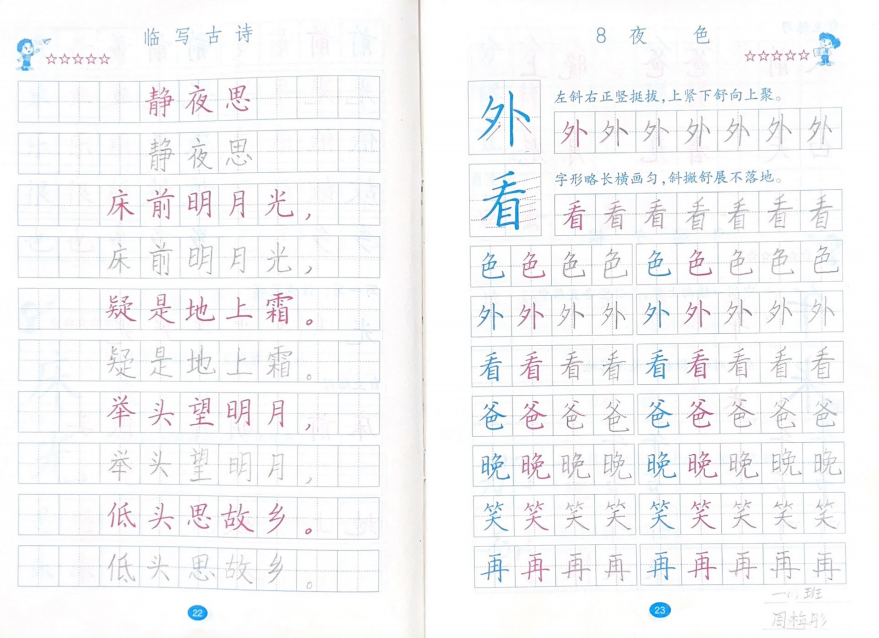 临写古诗
☆☆☆☆☆
静夜思
静夜思
床前明月光，
床前明月光，
疑是地上霜。
疑是地上霜。
举头望明月，
举头望明月，
低头思故乡。
低头思故乡。
22
8 夜色
☆☆☆☆☆
外
左斜右正竖挺拔，上紧下舒向上聚。
外外外外外外外
看
字形略长横画匀，斜撇舒展不落地。
看看看看看看看
色色色色色色色色色
外外外外外外外外外
看看看看看看看看看
爸爸爸爸爸爸爸爸爸
晚晚晚晚晚晚晚晚晚
笑笑笑笑笑笑笑笑笑
再再再再再再再再再
23
班
周梅彤